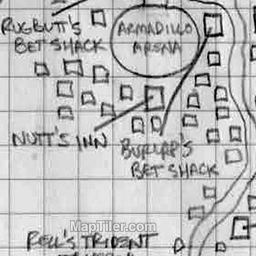 RUGBUTT'S
BET SHACK
ARMADILLO
ARENA
NUTT'S INN
BURLAP'S
BET SHACK
MapTiler.com
RELL'S TRIDENT